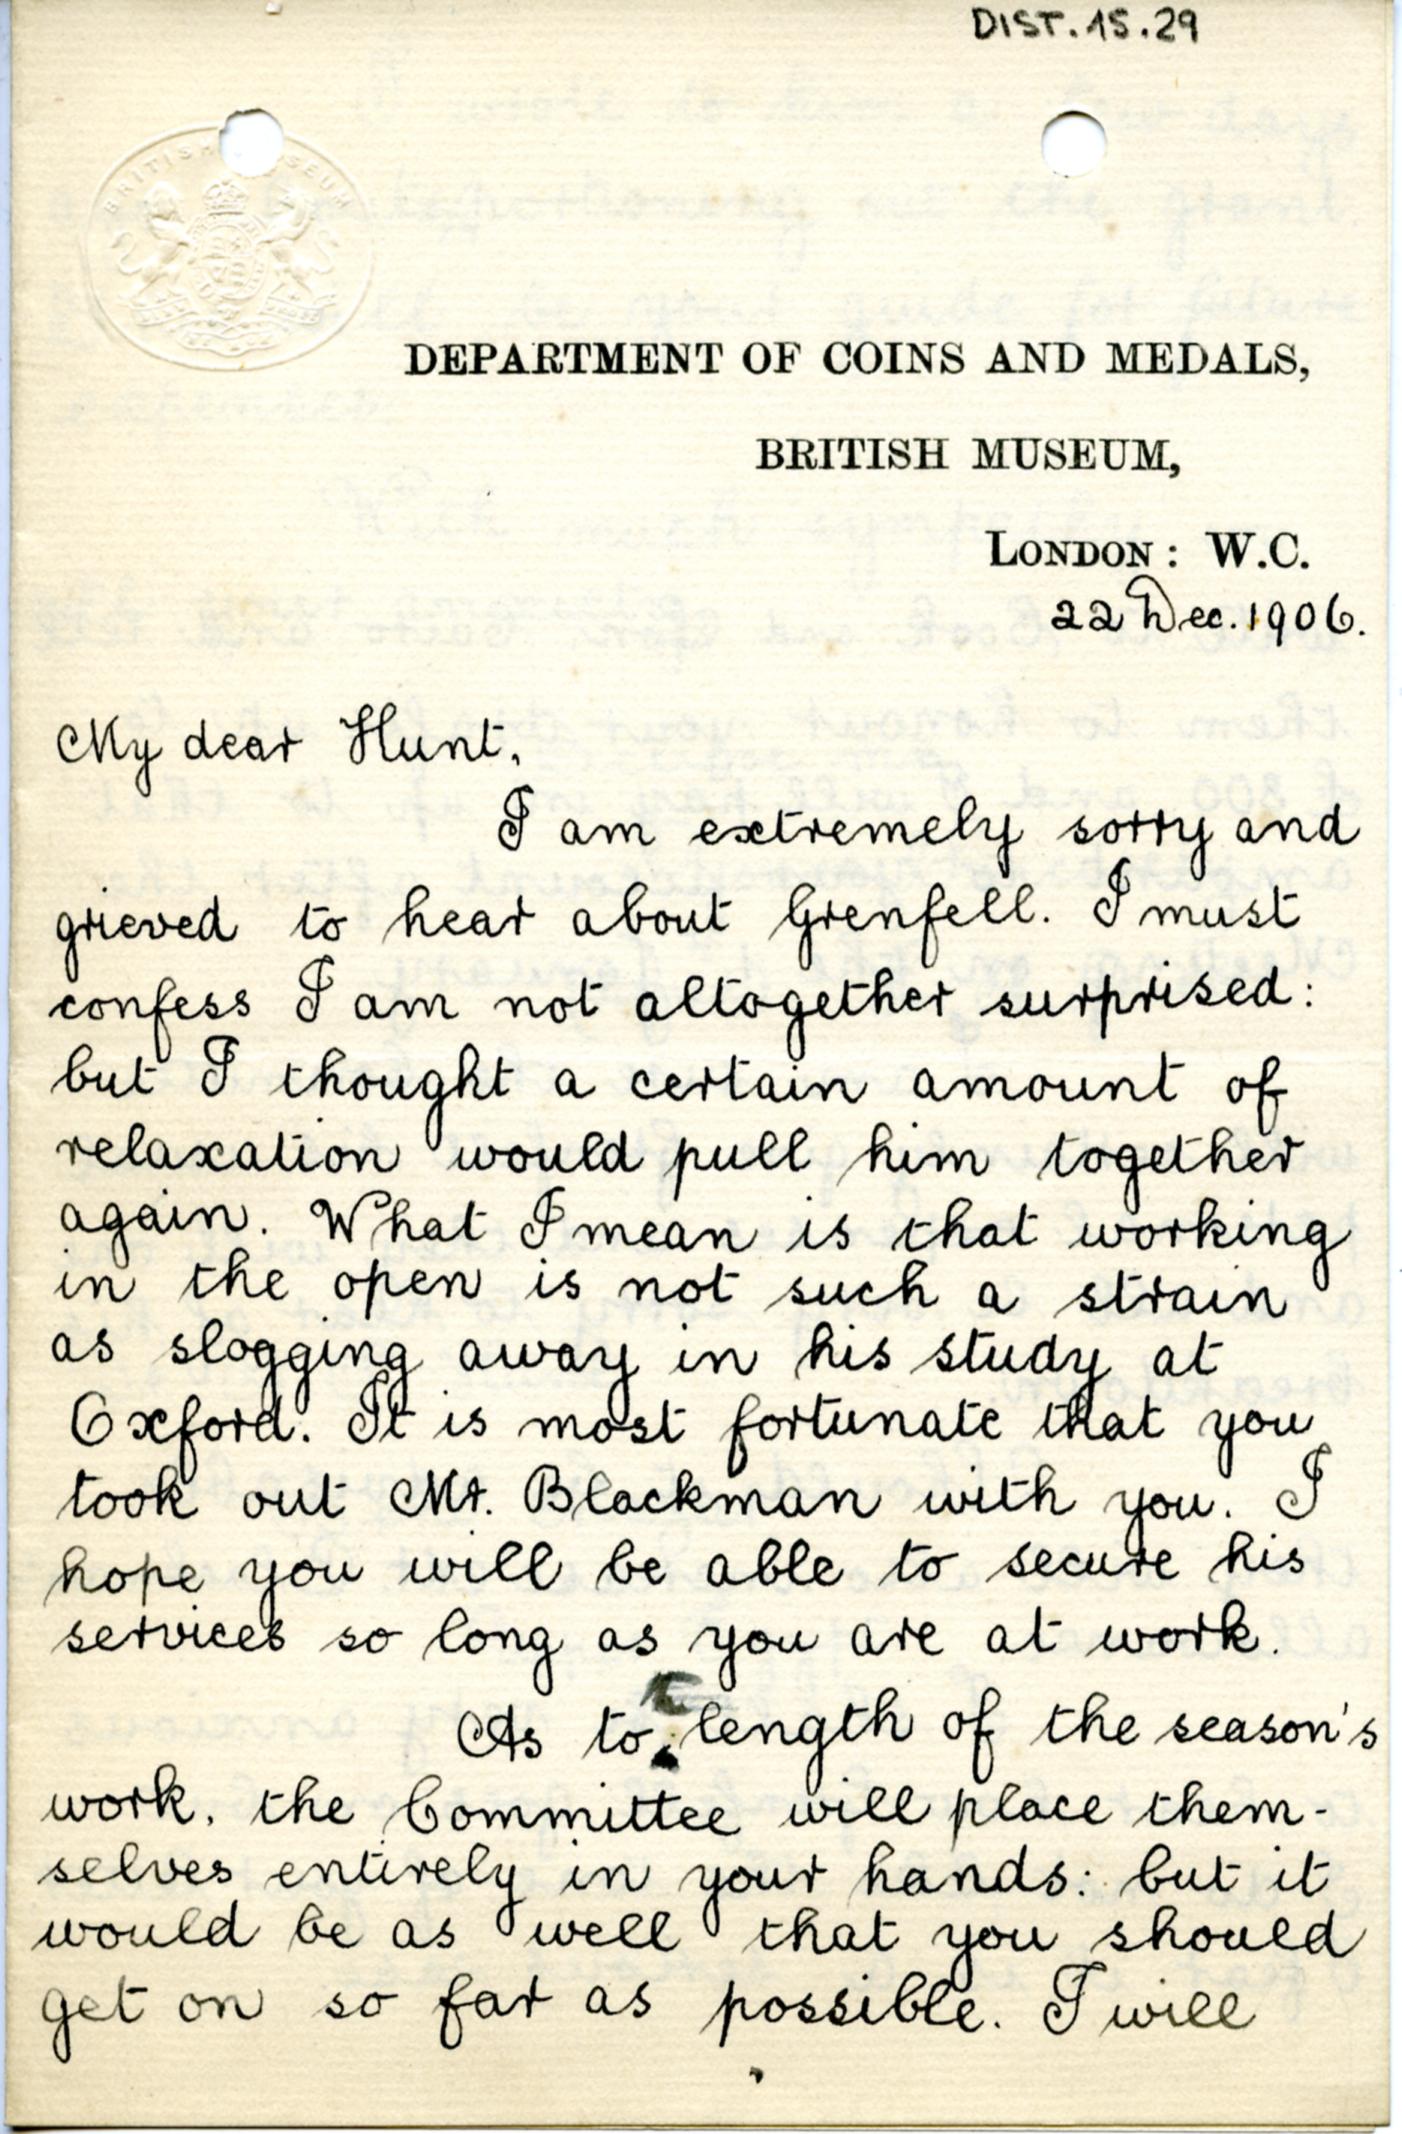 DIST.15.29
BRITISH MUSEUM
DEPARTMENT OF COINS AND MEDALS,
BRITISH MUSEUM,
LONDON: W.C.
22 Dec. 1906.
My dear Hunt,
I am extremely sorry and
grieved to hear about Grenfell. I must
confess I am not altogether surprised:
but I thought a certain amount of
relaxation would pull him together
again. What I mean is that working
in the open is not such a strain
as slogging away in his study at
Oxford. It is most fortunate that you
took out Mr. Blackman with you. I
hope you will be able to secure his
services so long as you are at work.
As to length of the season's
work, the Committee will place them-
selves entirely in your hands: but it
would be as well that you should
get on so far as possible. I will